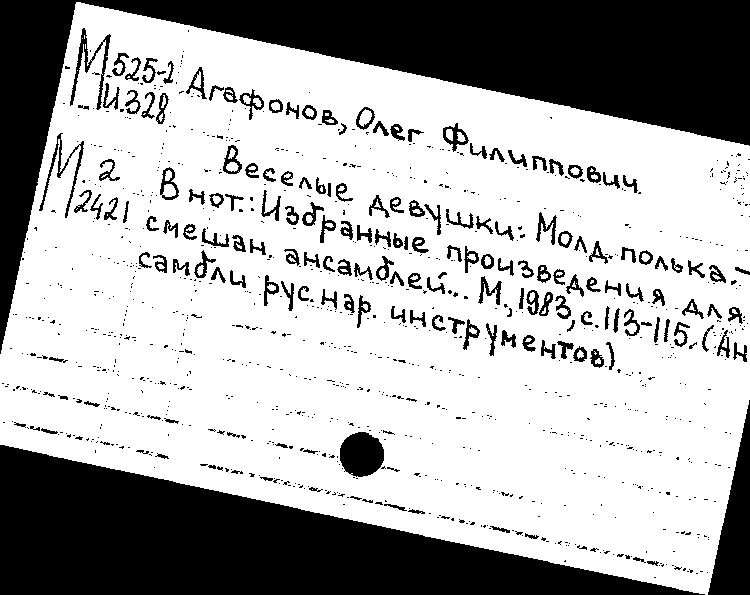 М 525-2
И.328
Агафонов, Олег Филиппович
М. 2
2421
Веселые девушки: Молд. полька. –
В нот.: Избранные произведения для
смешан. ансамблей... М., 1983, с. 113-115. (Ан
самбли рус. нар. инструментов).